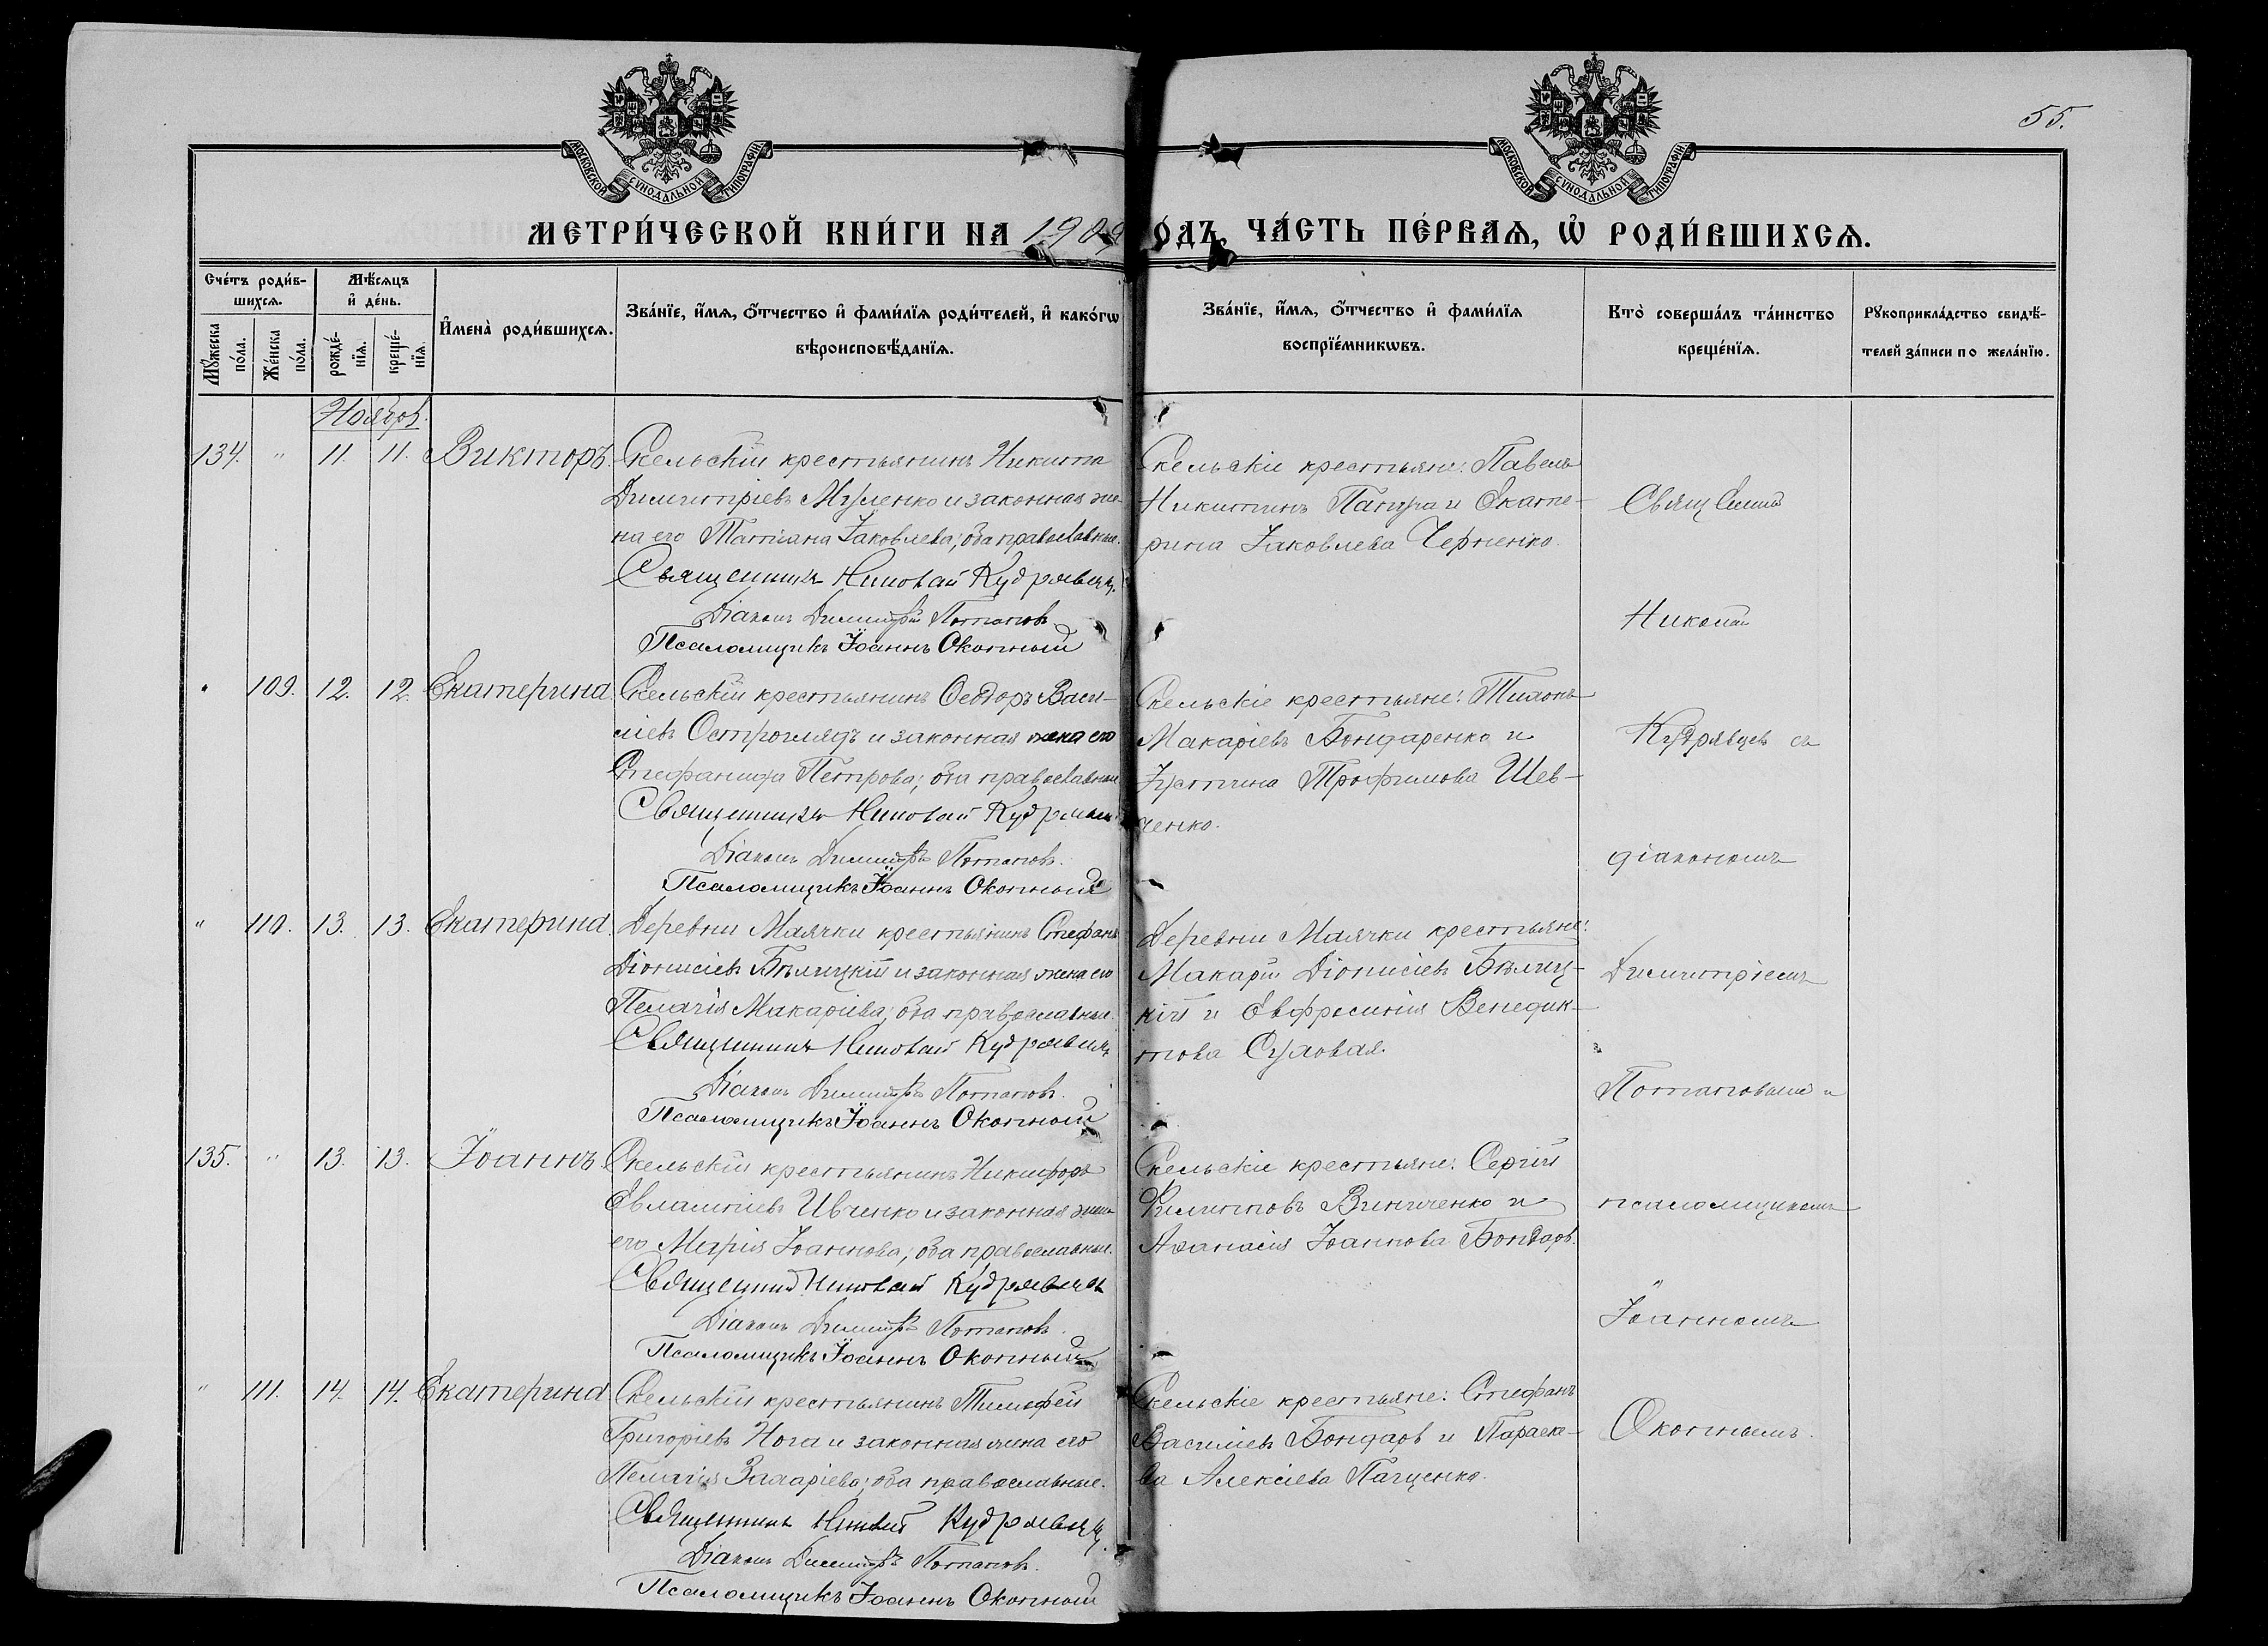 55.
МОСКОВСКОЙ СѴНОДАЛЬНОЙ ТИПОГРАФІИ
МОСКОВСКОЙ СѴНОДАЛЬНОЙ ТИПОГРАФІИ
МЕТРИ́ЧЕСКОЙ КНИ́ГИ НА 1909 ОДЪ, ЧА́СТЬ ПЕ́РВАЯ, Ѡ РОДИ́ВШИХСЯ.
Сче́тъ роди́в-
шихся.
Мꙋ́жеска по́ла.
Же́нска по́ла.
Мѣ́сяцъ
и҆ де́нь.
рожде́-
нїя.
креще́-
нїя.
И҆мена̀ роди́вшихся.
Зва́нїе, и҆́мя, ѻ҆́тчество и҆ фами́лїя роди́телей, и҆ како́гѡ
вѣроисповѣ́данїя.
Зва́нїе, и҆́мя, ѻ҆́тчество и҆ фами́лїя
воспрїе́мникѡвъ.
Кто̀ соверша́лъ та́инство
креще́нїя.
Рꙋкоприкла́дство свидѣ́-
телей за́писи по жела́нїю.
Ноябрь.
134. " 11. 11. Викторъ.
Скельскій крестьянинъ Никита
Димитріевъ Мусіенко и законная же-
на его Татіана Іаковлева; оба православные.
Священникъ Николай Кудрявцевъ
Діаконъ Димитрій Потаповъ
Псаломщикъ Іоаннъ Окопный
Скельскіе крестьяне: Павелъ
Никитинъ Папура и Екате-
рина Іаковлева Черненко.
Священникъ
Николай
Кудрявцевъ съ
діакономъ
Димитріемъ
Потаповымъ и
псаломщикомъ
Іоанномъ
Окопнымъ.
" 109. 12. 12. Екатерина
Скельскій крестьянинъ Ѳеодоръ Васи-
ліевъ Остроглядъ и законная жена его
Стефанида Петрова; оба православные
Священникъ Николай Кудрявцевъ
Діаконъ Димитрій Потаповъ.
Псаломщикъ Іоаннъ Окопный
Скельскіе крестьяне: Тихонъ
Макаріевъ Бондаренко и
Іустина Трофимова Шев-
ченко.
" 110. 13. 13. Екатерина.
Деревни Маячки крестьянинъ Стефанъ
Діонисіевъ Бѣлицкій и законная жена его
Пелагія Макаріева; оба православные.
Священникъ Николай Кудрявцевъ
Діаконъ Димитрій Потаповъ.
Псаломщикъ Іоаннъ Окопный
Деревни Маячки крестьяне:
Макарій Діонисіевъ Бѣлиц-
кій и Евфросинія Венедик-
това Суховая.
135. " 13. 13. Іоаннъ.
Скельскій крестьянинъ Никифоръ
Евлампіевъ Ивченко и законная жена
его Марія Іоаннова; оба православные.
Священникъ Николай Кудрявцевъ
Діаконъ Димитрій Потаповъ.
Псаломщикъ Іоаннъ Окопный
Скельскіе крестьяне: Сергій
Филипповъ Винниченко и
Аѳанасія Іоаннова Бондарь.
" 111. 14. 14. Екатерина
Скельскій крестьянинъ Тимофей
Григоріевъ Нога и законная жена его
Пелагія Захаріева; оба православные.
Священникъ Николай Кудрявцевъ
Діаконъ Димитрій Потаповъ.
Псаломщикъ Іоаннъ Окопный
Скельскіе крестьяне: Стефанъ
Василіевъ Бондарь и Параске-
ва Алексіева Пащенко.